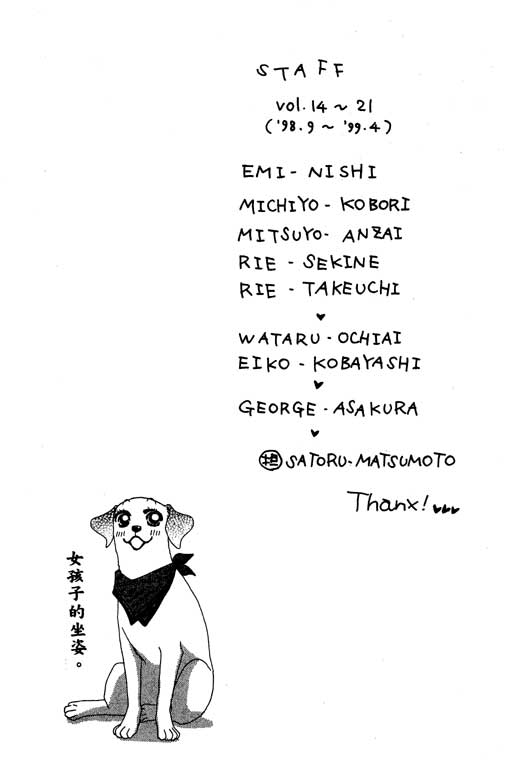 STAFF
vol.14 ~ 21
('98.9 ~ '99.4)
EMI - NISHI
MICHIYO - KOBORI
MITSUYO - ANZAI
RIE - SEKINE
RIE - TAKEUCHI
♥
WATARU - OCHIAI
EIKO - KOBAYASHI
♥
GEORGE - ASAKURA
♥
担 SATORU - MATSUMOTO
Thanx! ♥♥♥
女孩子的坐姿。